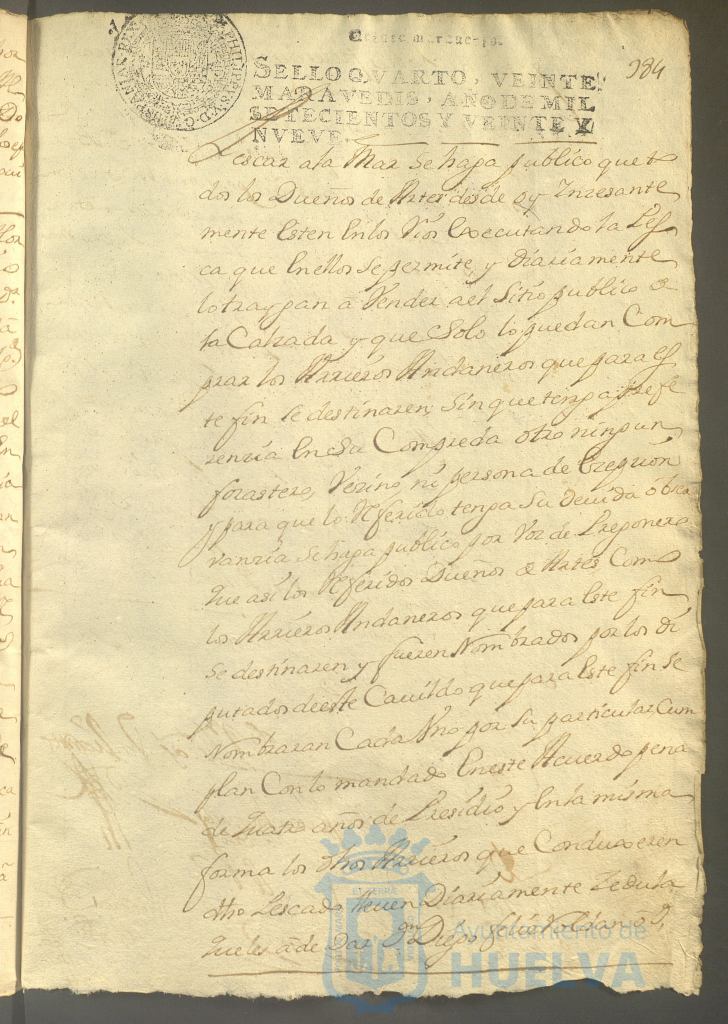 384
SELLO QVARTO, VEINTE
MARAVEDIS, AÑO DE MIL
SETECIENTOS Y VEINTE Y
NVEVE.
Pescar a la Mar se haga publico que to
dos los Dueños de Artes desde oy Inzesante
mente Esten En los Rios Executando la Pes
ca que En ellos se permite, y Diariamente
lo traygan a Vender a el Sitio publico de
la Calzada y que solo lo puedan Com
prar los Arrieros Andaneros que para es
te fin se destinaren, sin que tenga prefe
renzia En su Compreda otro ningun
forastero, Vezino ni persona de Exepzion
y para que lo Referido tenga su devida obser
vanzia se haga publico por Voz de Pregonero
que asi los Referidos Dueños de Artes Como
los Arrieros Andaneros que para Este fin
se destinaren y fueren Nombrados por los di
putados de este Cavildo que para Este fin se
Nombraran Cada Uno por su particular Cum
plan Con lo mandado En este Acuerdo pena
de quatro años de Presidio y En la misma
forma los dhos Arrieros que Conduxeren
dho Pescado lleven Diariamente Zedula
que les a de Dar Dn Diego
Ayuntamiento de
HUELVA